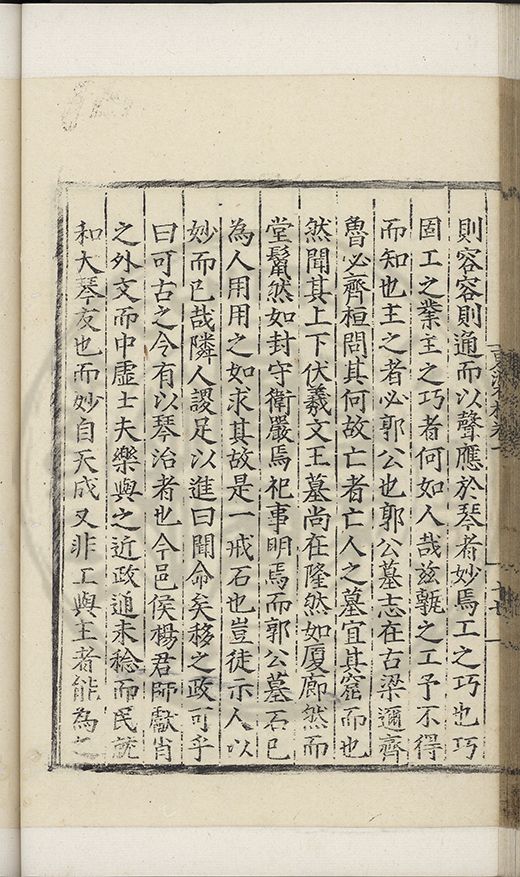 則容容則通而以聲應於琴者妙焉工之巧也巧
固工之業主之巧者何如人哉兹甎之工予不得
而知也主之者必郭公也郭公墓志在古梁邇齊
魯必齊桓問其何故亡者亡人之墓宜其窟而也
然聞其上下伏羲文王墓尚在隆然如厦廊然而
堂鬣然如封守衛嚴焉祀事明焉而郭公墓石已
為人用用之如求其故是一戒石也豈徒示人以
妙而已哉隣人謖足以進曰聞命矣移之政可乎
曰可古之今有以琴治者也今邑侯楊君師獻肖
之外文而中虛士夫樂與之近政通未稔而民說
和大琴友也而妙自天成又非工與主者能為